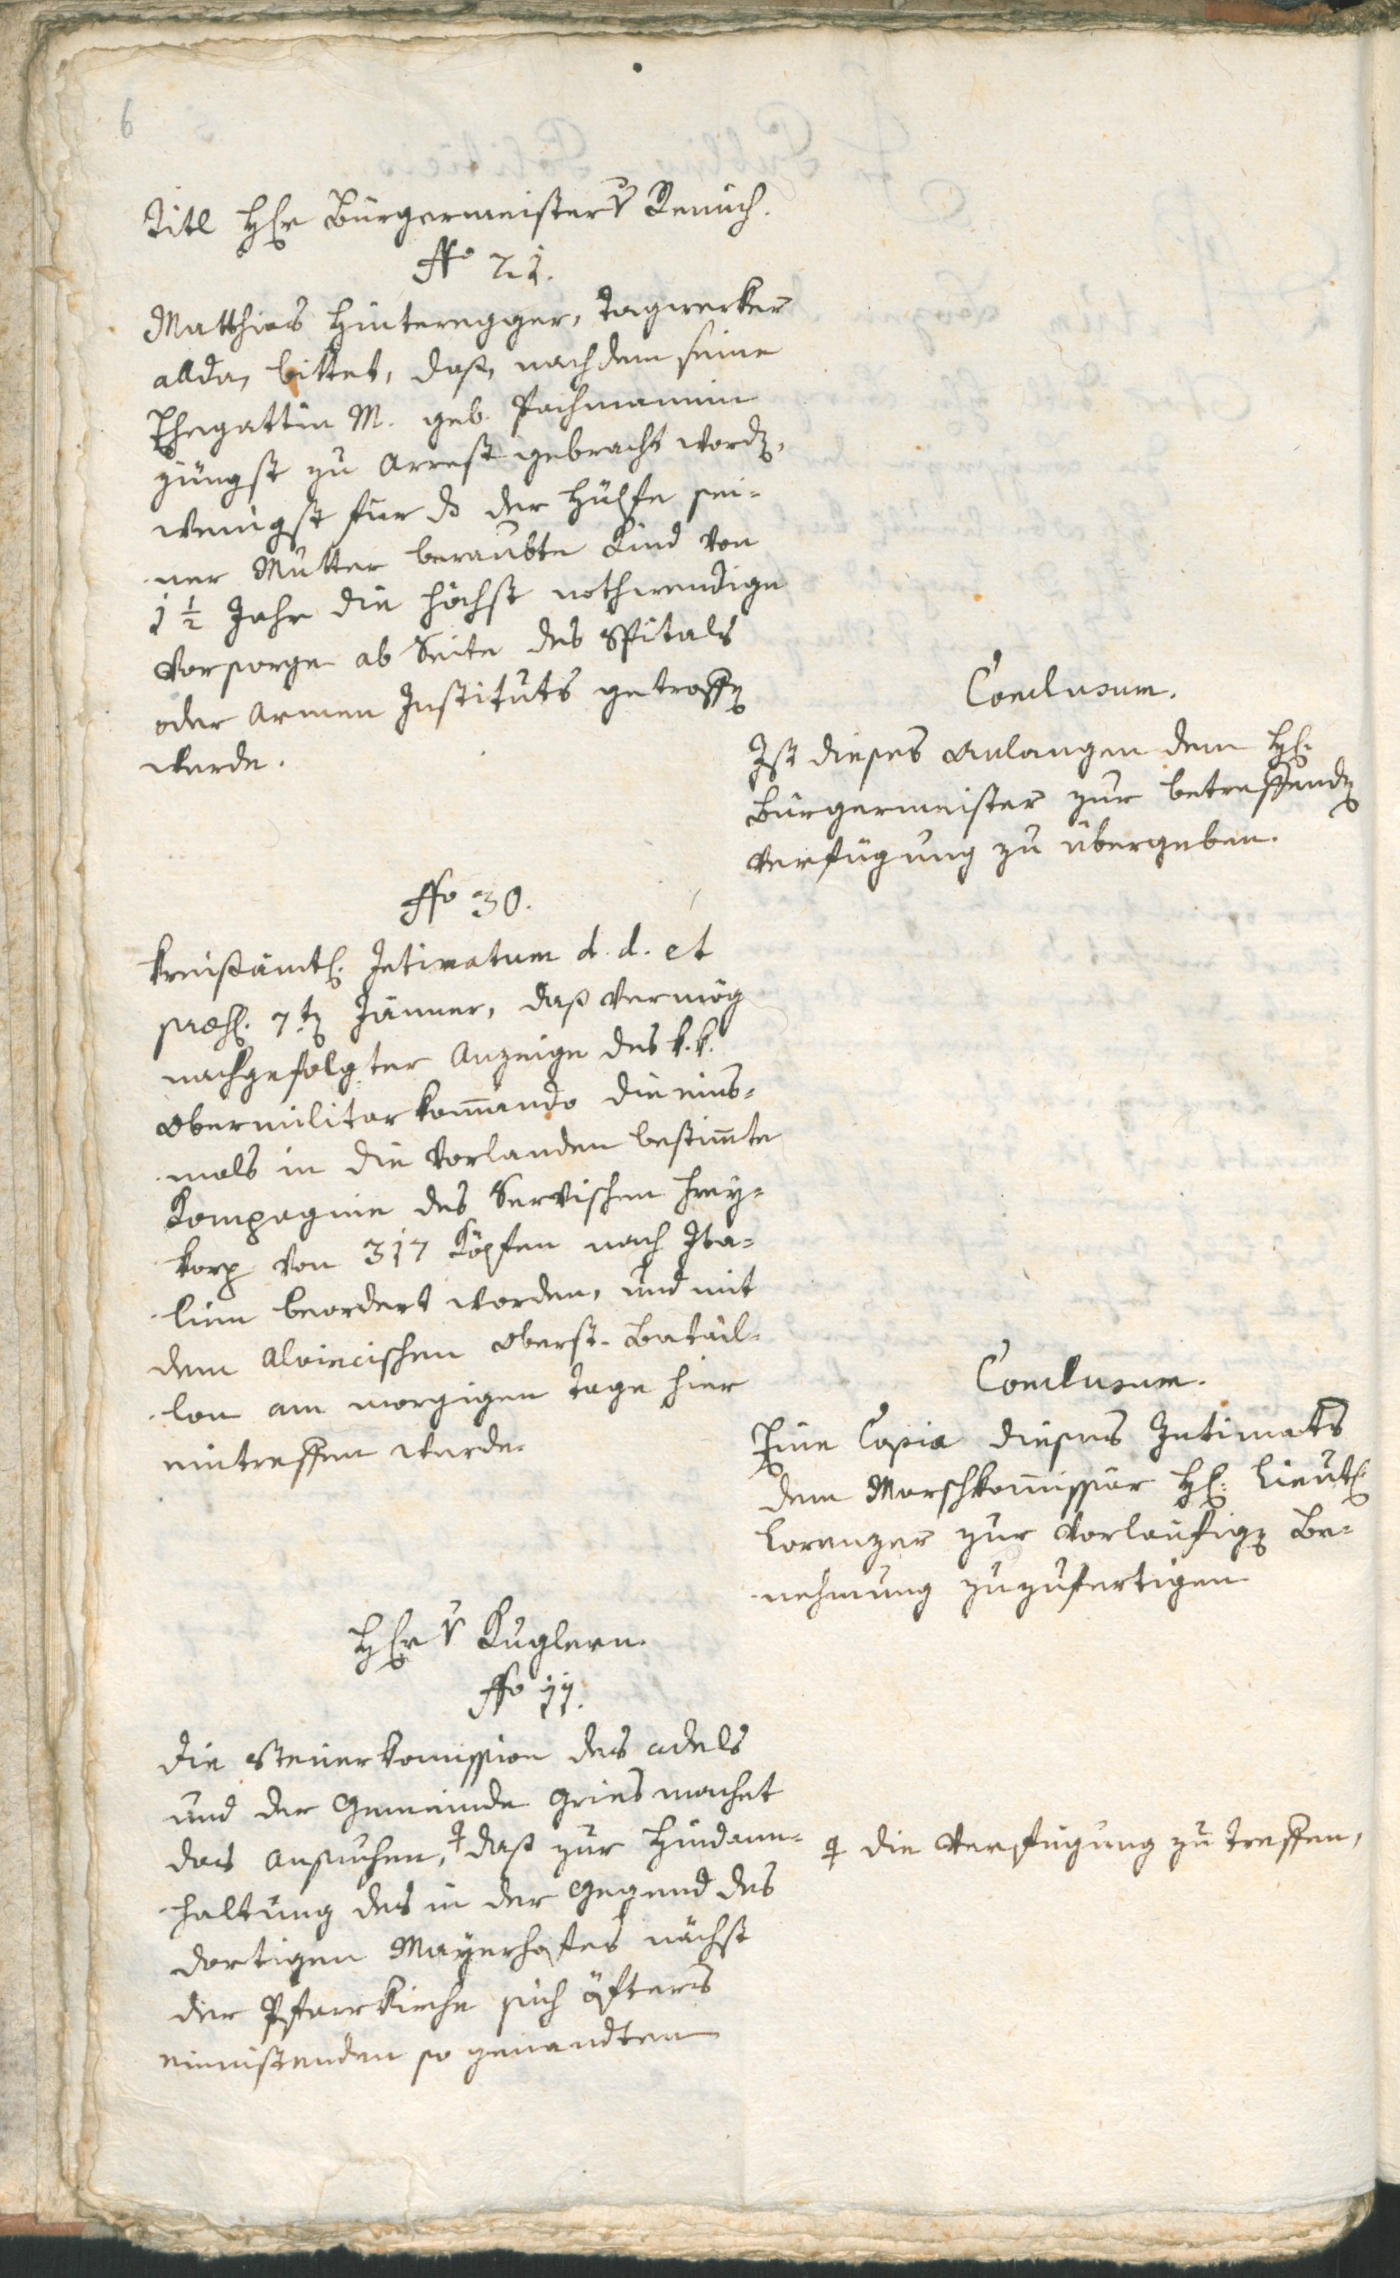 6
Titl Herr Bürgermeister v Remich.
No 21.
Matthias Hinteregger, Tagwerker
allda, bittet, daß, nachdem seine
Ehegattin M. geb. Pachmannin
jüngst zu Arrest gebracht word,
wenigst für ds der Hülfe sei-
ner Mutter beraubte Kind von
1 1/2 Jahr die höchst nothwendige
Vorsorge ab Seite des Spitals
oder Armen Instituts getroffen
werde.
Conclusum.
Ist dieses Anlangen dem H.
Bürgermeister zur betreffenden
Verfügung zu übergeben.
No 30.
Kreisämtl. Intimatum d. d. et
præs. 7ten Jänner, daß vermög
nachgefolgter Anzeige des k. k.
Obermilitarkommando die eins-
mals in die Vorlanden bestimmte
Kompagnie des Servischen Frey-
korp von 317 Köpfen nach Ita-
lien beordert worden, und mit
dem Alvincischen Oberst-Batail-
lon am morgigen Tage hier
eintreffen werde.
Conclusum.
Eine Copia dieses Intimats
dem Marschkommissär H. Lieut.
Lorenzer zur vorläufigen Be-
nehmung zuzufertigen
Herr v Kuglern.
No 11.
Die Steuerkommission des Adels
und der Gemeinde Gries machet
das Ansuchen, ♀ daß zur Hindann-
haltung des in der Gegend des
dortigen Mayrhofes nächst
der Pfarrkirche sich öfters
einnistenden so genandten
♀ die Verfügung zu treffen,